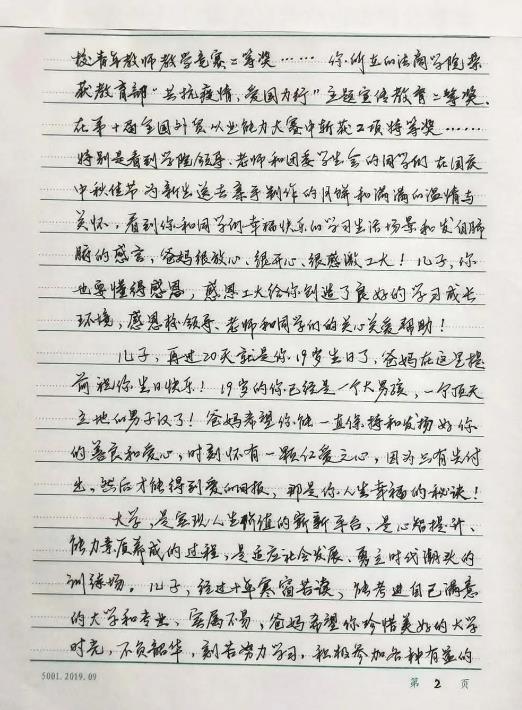 校青年教师教学竞赛二等奖……你所在的法商学院荣
获教育部“共抗疫情，爱国力行”主题宣传教育二等奖、
在第十届全国外贸从业能力大赛中斩获2项特等奖……
特别是看到学院领导、老师和团委学生会的同学们在国庆
中秋佳节为新生送去亲手制作的月饼和满满的温情与
关怀，看到你和同学们幸福快乐的学习生活场景和发自肺
腑的感言，爸妈很放心、很开心、很感激工大！儿子，你
也要懂得感恩，感恩工大给你创造了良好的学习成长
环境，感恩校领导、老师和同学们的关心关爱帮助！
儿子，再过20天就是你19岁生日了，爸妈在这里提
前祝你生日快乐！19岁的你已经是一个大男孩，一个顶天
立地的男子汉了！爸妈希望你能一直保持和发扬好你
的善良和爱心，时刻怀有一颗仁爱之心，因为只有先付
出，然后才能得到爱的回报，那是你人生幸福的秘诀！
大学，是实现人生价值的崭新平台，是心智提升、
能力素质养成的过程，是适应社会发展、勇立时代潮头的
训练场。儿子，经过十年寒窗苦读，能考进自己满意
的大学和专业，实属不易，爸妈希望你珍惜美好的大学
时光，不负韶华，刻苦努力学习，积极参加各种有益的
5001.2019.09
第 2 页